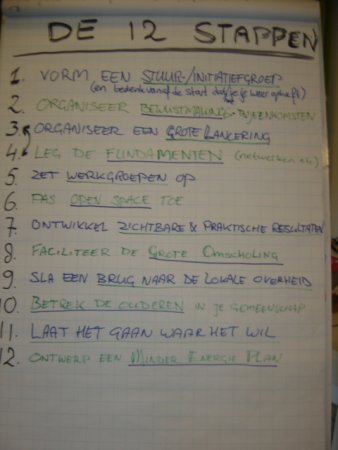 DE 12 STAPPEN
1. VORM EEN STUUR-/INITIATIEFGROEP
(en bedenk vanaf de start dat je je weer opheft)
2. ORGANISEER BEWUSTMAKINGS-BIJEENKOMSTEN
3. ORGANISEER EEN GROTE LANCERING
4. LEG DE FUNDAMENTEN (netwerken etc)
5. ZET WERKGROEPEN OP
6. PAS OPEN SPACE TOE
7. ONTWIKKEL ZICHTBARE & PRAKTISCHE RESULTATEN
8. FACILITEER DE GROTE OMSCHOLING
9. SLA EEN BRUG NAAR DE LOKALE OVERHEID
10. BETREK DE OUDEREN IN JE GEMEENSCHAP
11. LAAT HET GAAN WAAR HET WIL
12. ONTWERP EEN MINDER ENERGIE PLAN